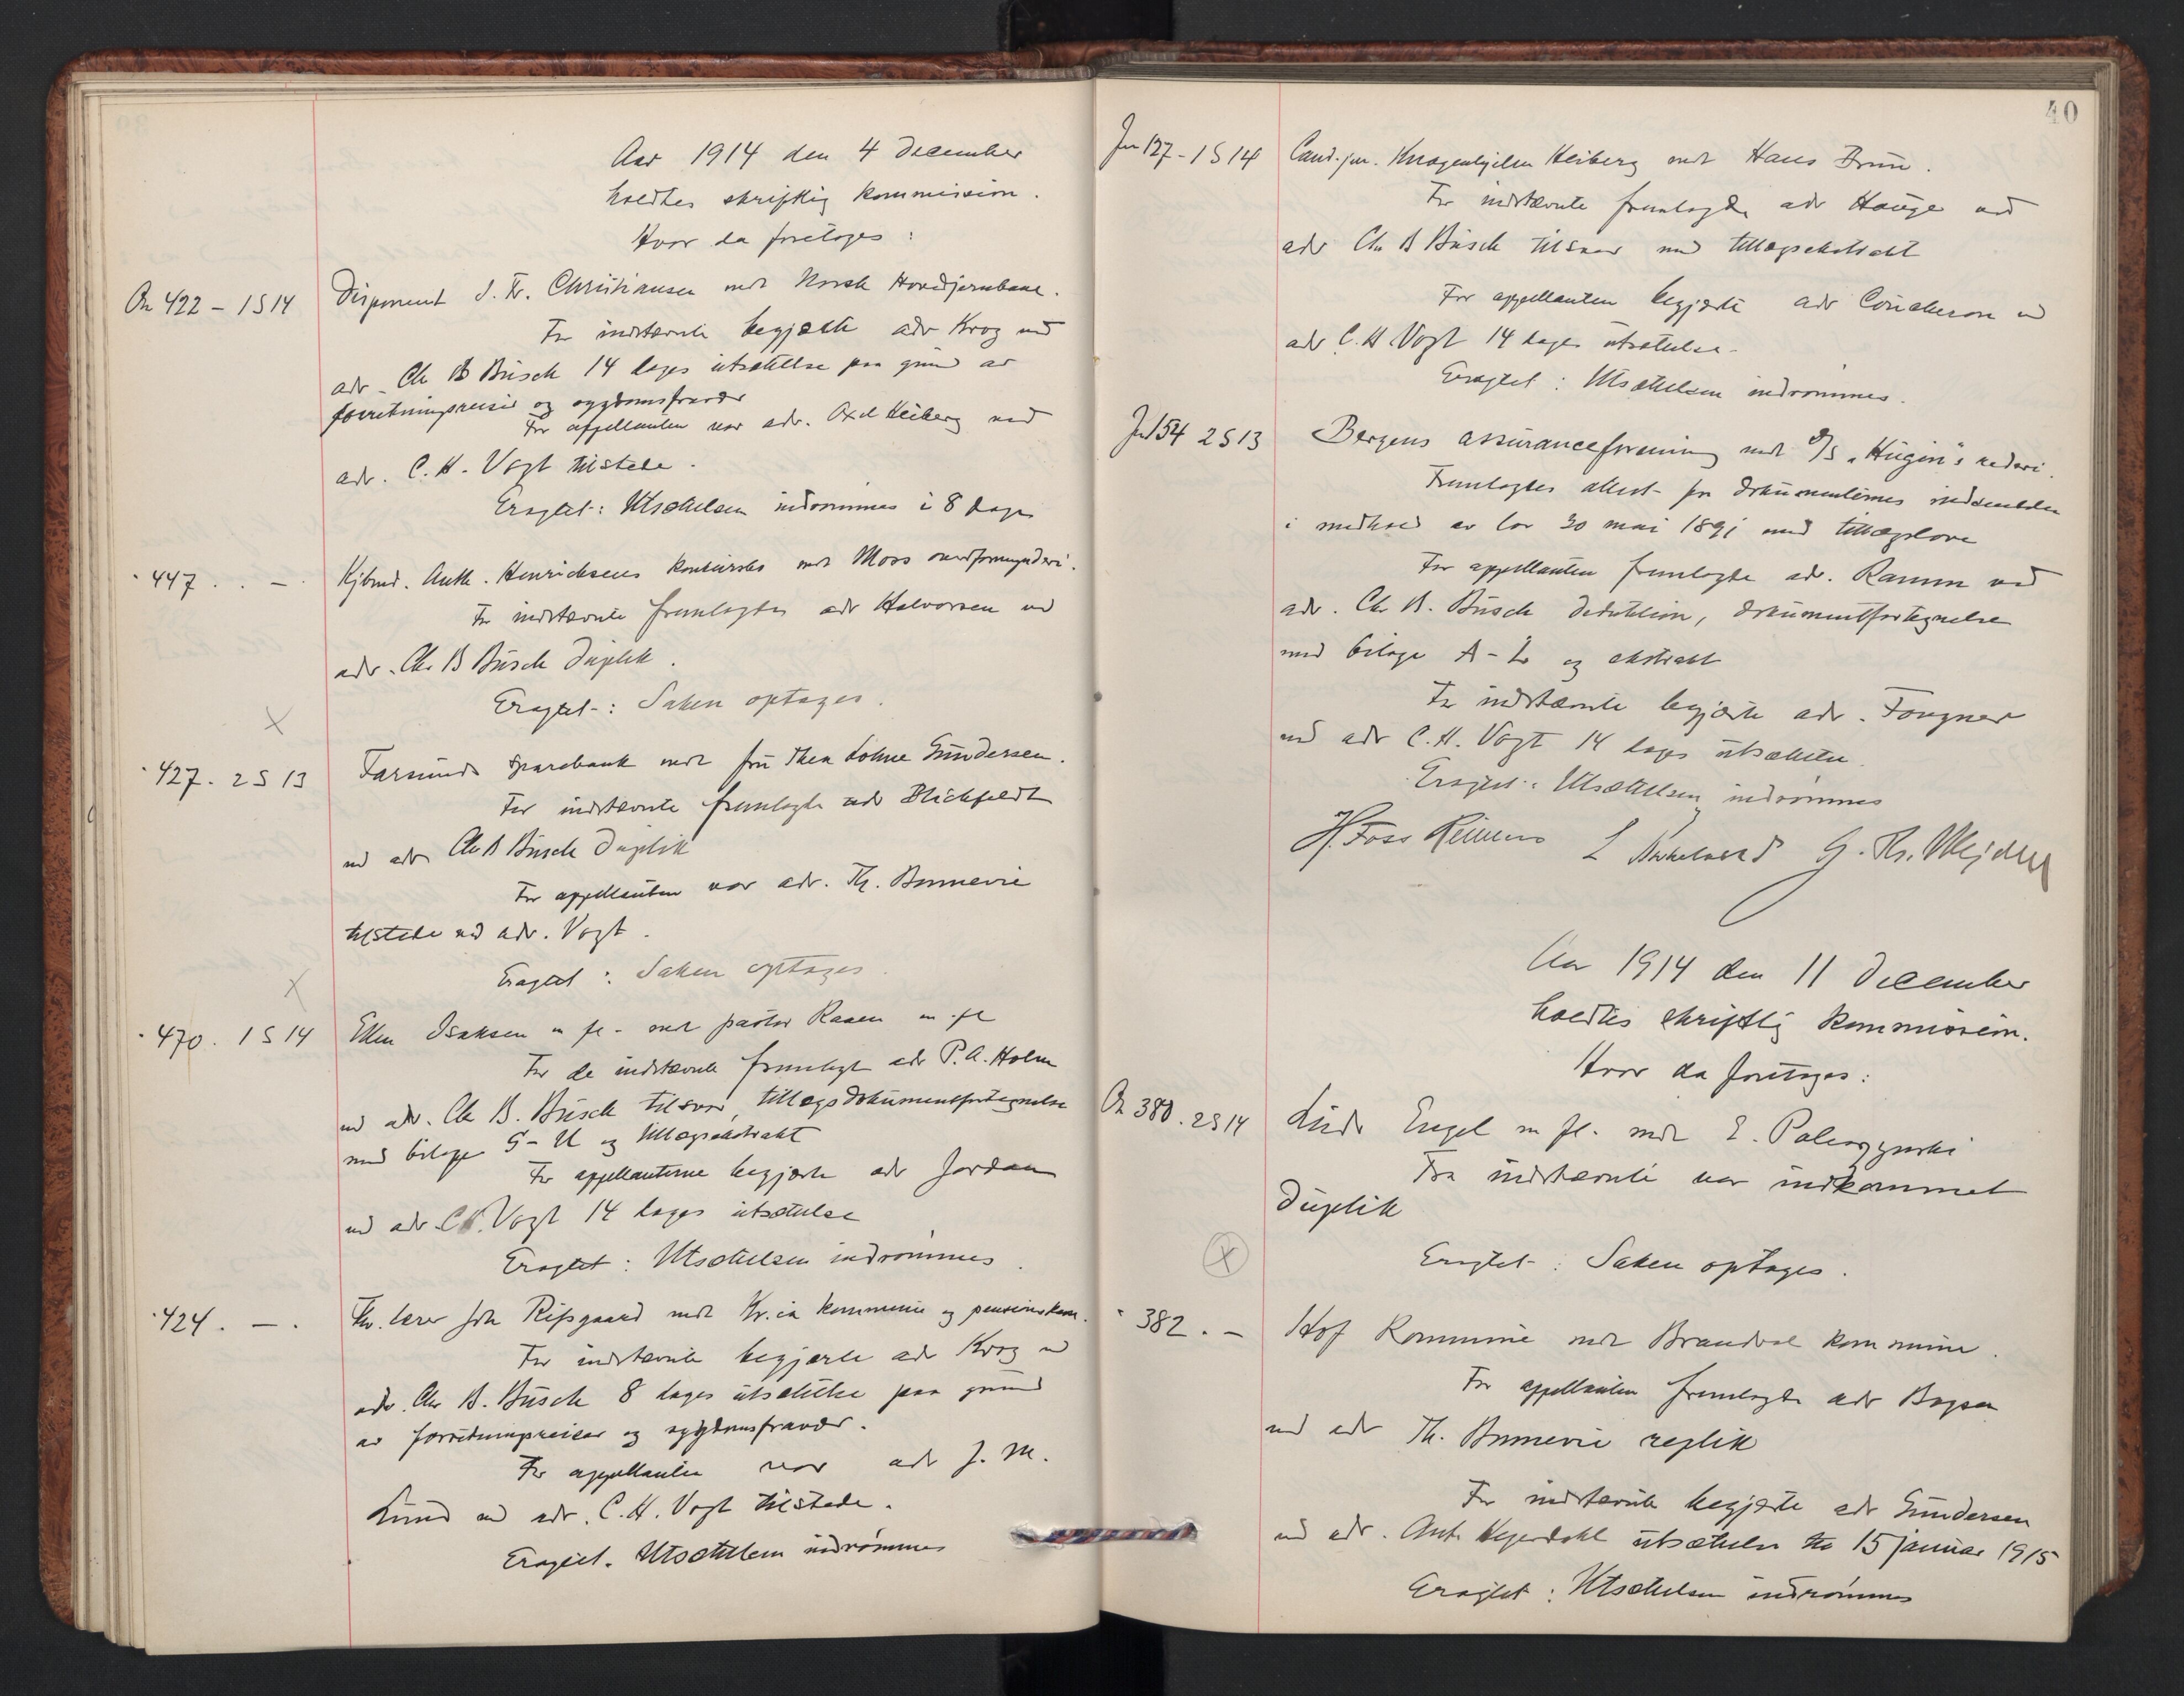 Aar 1914 den 4 december
holdtes skriftlig kommission.
Hvor da foretoges:
An 422 – 1 S 14 Disponent J. Fr. Christiansen mot Norsk Hovedjernbane.
For indstævnte begjærte adv Krog ved
adv. Chr B Busch 14 dages utsættelse paa grund av
forretningsreise og sygdomsfravær
For appellanten var adv. Axel Heiberg ved
adv. C. H. Vogt tilstede.
Eragtet: Utsættelsen indrømmes i 8 dage
" 447 . . – . Kjbmd. Anth. Henrichsens konkursbo mot Moss overformynderi.
For indstævnte fremlagdes adv Halvorsen ved
adv. Chr B Busch duplik.
Eragtet: Saken optages.
X
" 427. 2 S 13 Farsunds Sparebank mot fru Thea Lohne Gundersen.
For indstævnte fremlagde adv Blichfeldt
ved adv Chr B Busch duplik
For appellanten var adv. Th. Bonnevie
tilstede ved adv. Vogt.
Eragtet: Saken optages.
X
" 470. 1 S 14 Ellen Isaksen m fl. mot pastor Raaen m fl
For de indstævnte fremlagt adv P. A. Holm
ved adv. Chr B. Busch tilsvar, tillægsdokumentfortegnelse
med bilage S – U og tillægsekstrakt
For appellanterne begjærte adv Jordan
ved adv C H. Vogt 14 dages utsættelse
Eragtet: Utsættelsen indrømmes.
" 424. – . Fhv. lærer Joh Risgaard mot Kr.ia kommune og pensionskasse.
For indstævnte begjærte adv Krog ved
adv. Chr B. Busch 8 dages utsættelse paa grund
av forretningsreiser og sygdomsfravær.
For appellanten var adv J. M.
Lund ved adv. C. H. Vogt tilstede.
Eragtet. Utsættelsen indrømmes
40
Jn 127 – 1 S 14 Cand. jur. Knagenhjelm Heiberg mot Hans Brun.
For indstævnte fremlagde adv Hauge ved
adv Chr B Busch tilsvar med tillægsekstrakt
For appellanten begjærte adv Coucheron ved
adv C. H Vogt 14 dages utsættelse.
Eragtet: Utsættelsen indrømmes.
Jn 154 2 S 13 Bergens assuranceforening mot D/S "Hugin"s rederi.
Fremlagdes attest for dokumenternes indsendelse
i medhold av lov 30 mai 1891 med tillægslove
For appellanten fremlagde adv. Ramm ved
adv. Chr B. Busch deduktion, dokumentfortegnelse
med bilage A – L og ekstrakt
For indstævnte begjærte adv. Fougner
ved adv C. H. Vogt 14 dages utsættelse.
Eragtet: Utsættelsen indrømmes
H. Foss Reimers
Aar 1914 den 11 december
holdtes skriftlig kommission.
Hvor da foretoges:
An 380. 2 S 14 Engel m fl. mot
Fra indstævnte var indkommet
duplik
Eragtet: Saken optages.
X
" 382. – Hof Kommune mot Brandval kommune.
For appellanten fremlagde adv
ved adv Th. Bonnevie replik
For indstævnte begjærte adv Gundersen
ved adv. Anth Hegerdahl utsættelse til 15 januar 1915
Eragtet: Utsættelsen indrømmes